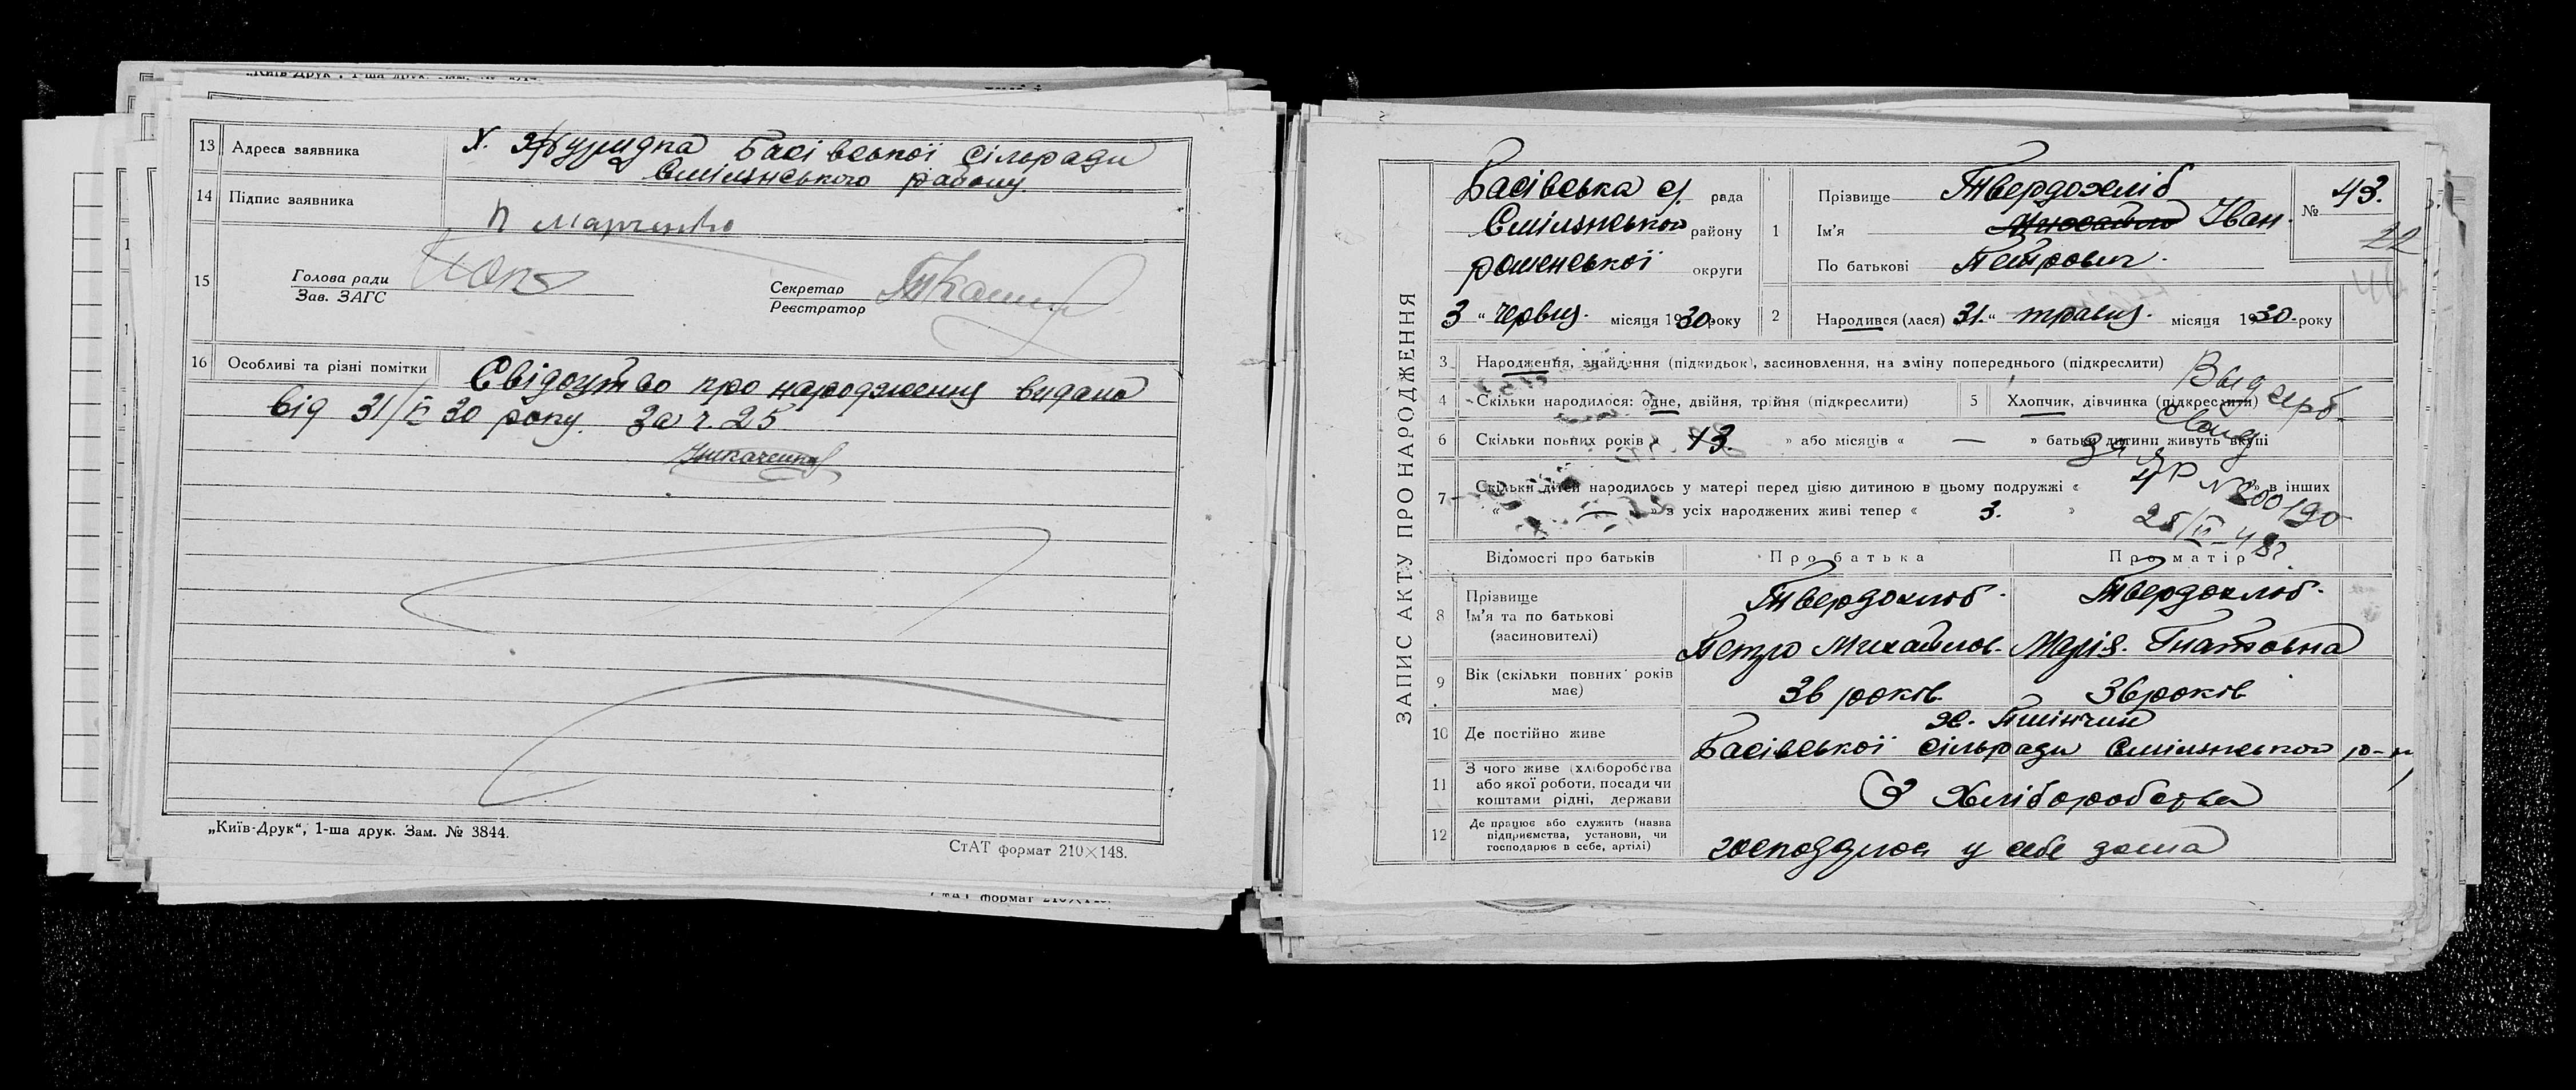 13 Адреса заявника
Х. Журидка Басівської сільради
Смілянського району
14 Підпис заявника
П Марченко
15 Голова ради
Зав. ЗАГС
Секретар
Реєстратор
Ткаченко
16 Особливі та різні помітки
Свідоцтво про народження видано
від 31/V 30 року. За ч. 25
Ткаченко
„Київ-Друк“, 1-ша друк. Зам. № 3844.
СтАТ формат 210×148.
СтАТ формат 210×148.
ЗАПИС АКТУ ПРО НАРОДЖЕННЯ
Басівська с/. рада
Смілянського району
роменської округи
3 “ червня. місяця 1930 року
1 Прізвище Твердохліб
Ім'я Михайло Іван.
По батькові Петрович.
№ 43.
22
44
2 Народився (лася) 31. “ травня. місяця 1930 року
3 Народження, знайдення (підкидьок), засиновлення, на зміну попереднього (підкреслити)
4 Скільки народилося: одне, двійня, трійня (підкреслити)
5 Хлопчик, дівчинка (підкреслити)
6 Скільки повних років « 13 » або місяців « — » батьки дитини живуть вкупі
7 Скільки дітей народилось у матері перед цією дитиною в цьому подружжі « 4 » в інших
« — » з усіх народжених живі тепер « 3. »
№ 200190
Відомості про батьків
Про батька
Про матір
8 Прізвище
Ім'я та по батькові
(засиновителі)
Твердохліб.
Твердохліб.
Петро Михайлов.
Марія. Гнатовна
9 Вік (скільки повних років
має)
36 років
36 років
10 Де постійно живе
х. Пшінчий
Басівської сільради Смілянського р-ну
11 З чого живе (хліборобства
або якої роботи, посади чи
коштами рідні, держави
З Хліборобства
12 Де працює або служить (назва
підприємства, установи, чи
господарює в себе, артілі)
господарює у себе дома